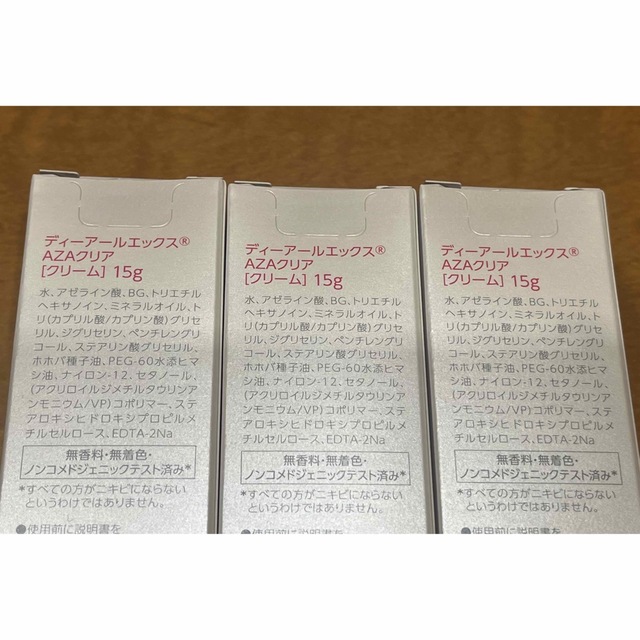 ディーアールエックス®
AZAクリア
[クリーム] 15g
水、アゼライン酸、BG、トリエチル
ヘキサノイン、ミネラルオイル、ト
リ(カプリル酸/カプリン酸)グリセ
リル、ジグリセリン、ペンチレングリ
コール、ステアリン酸グリセリル、
ホホバ種子油、PEG-60水添ヒマ
シ油、ナイロン-12、セタノール、
(アクリロイルジメチルタウリンア
ンモニウム/VP)コポリマー、ステ
アロキシヒドロキシプロピルメ
チルセルロース、EDTA-2Na
無香料・無着色・
ノンコメドジェニックテスト済み*
*すべての方がニキビにならない
というわけではありません。
●使用前に説明書を
ディーアールエックス®
AZAクリア
[クリーム] 15g
水、アゼライン酸、BG、トリエチル
ヘキサノイン、ミネラルオイル、ト
リ(カプリル酸/カプリン酸)グリセ
リル、ジグリセリン、ペンチレングリ
コール、ステアリン酸グリセリル、
ホホバ種子油、PEG-60水添ヒマ
シ油、ナイロン-12、セタノール、
(アクリロイルジメチルタウリンア
ンモニウム/VP)コポリマー、ステ
アロキシヒドロキシプロピルメ
チルセルロース、EDTA-2Na
無香料・無着色・
ノンコメドジェニックテスト済み*
*すべての方がニキビにならない
というわけではありません。
●使用前に説明書を
ディーアールエックス®
AZAクリア
[クリーム] 15g
水、アゼライン酸、BG、トリエチル
ヘキサノイン、ミネラルオイル、ト
リ(カプリル酸/カプリン酸)グリセ
リル、ジグリセリン、ペンチレングリ
コール、ステアリン酸グリセリル、
ホホバ種子油、PEG-60水添ヒマ
シ油、ナイロン-12、セタノール、
(アクリロイルジメチルタウリンア
ンモニウム/VP)コポリマー、ステ
アロキシヒドロキシプロピルメ
チルセルロース、EDTA-2Na
無香料・無着色・
ノンコメドジェニックテスト済み*
*すべての方がニキビにならない
というわけではありません。
●使用前に説明書を